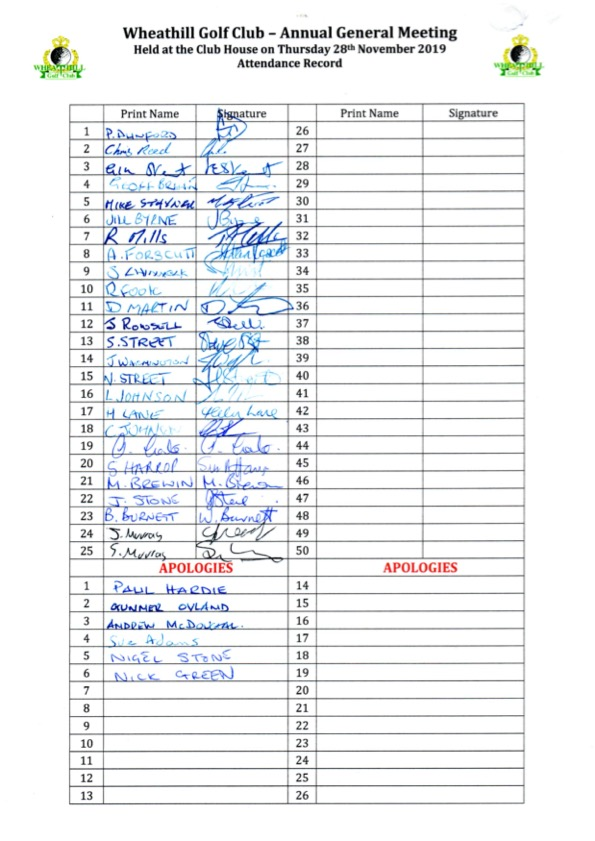 Wheathill Golf Club – Annual General Meeting
Held at the Club House on Thursday 28th November 2019
Attendance Record
WHEATHILL
Golf Club
WHEATHILL
Golf Club
Print Name Signature Print Name Signature
1 P. DUNFORD 26
2 Chris Reed 27
3 28
4 GEOFF BREWIN 29
5 MIKE STAYNER 30
6 JILL BYRNE J Byrne 31
7 R Mills 32
8 A. FORSCUTT 33
9 S 34
10 R Cook 35
11 D MARTIN 36
12 J ROWSELL 37
13 S. STREET 38
14 J WASHINGTON 39
15 N. STREET 40
16 L JOHNSON 41
17 H LANE Lane 42
18 C JOHNSON 43
19 44
20 S HARROP 45
21 M. BREWIN M. Brewin 46
22 J. STONE 47
23 B. BURNETT W. Burnett 48
24 J. Murray 49
25 S. Murray 50
APOLOGIES APOLOGIES
1 PAUL HARDIE 14
2 GUNMER OVLAND 15
3 ANDREW McDOUGAL. 16
4 Sue Adams 17
5 NIGEL STONE 18
6 NICK GREEN 19
7 20
8 21
9 22
10 23
11 24
12 25
13 26